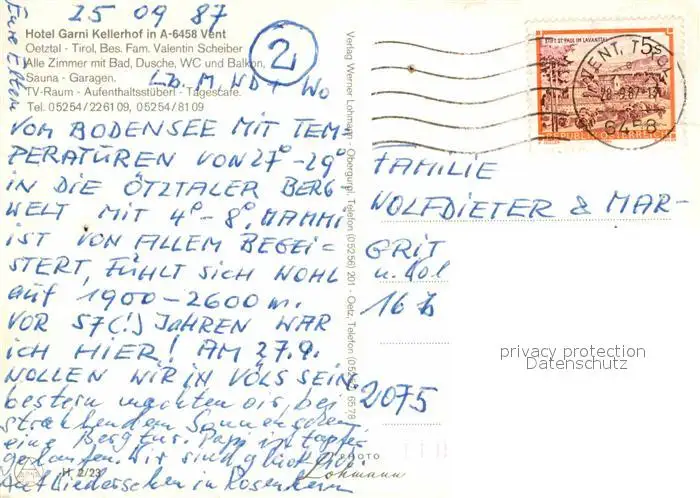 25 09 87
Hotel Garni Kellerhof in A-6458 Vent
Oetztal - Tirol, Bes. Fam. Valentin Scheiber
Alle Zimmer mit Bad, Dusche, WC und Balkon,
Sauna - Garagen.
TV-Raum - Aufenthaltsstüberl - Tagescafe.
Tel. 05254/226109, 05254/8109
2
Lb. M, ND + WO
VOM BODENSEE MIT TEM-
PERATUREN VON 27° - 29°
IN DIE ÖTZTALER BERG
WELT MIT 4° - 8°. MAMMI
IST VON ALLEM BEGEI-
STERT, FÜHLT SICH WOHL
auf 1900 - 2600 m.
VOR 57(!) JAHREN WAR
ICH HIER! AM 27.9.
WOLLEN WIR IN VÖLS SEIN.
gestern machten wir, bei
strahlendem Sonnenschein,
eine Bergtur. Papi ist tapfer
gelaufen. Wir sind glücklich.
Auf Wiedersehen in Rosenheim
Eure Eltern
H 2/23
Verlag Werner Lohmann - Obergurgl, Telefon (05256) 201 - Oetz, Telefon (05252) 6578
PHOTO
Lohmann
STIFT ST. PAUL IM LAVANTTAL
5
REPUBLIK ÖSTERREICH
VENT, TIROL
6458
FAMILIE
WOLFDIETER & MAR-
GRIT
16
2075
privacy protection
Datenschutz